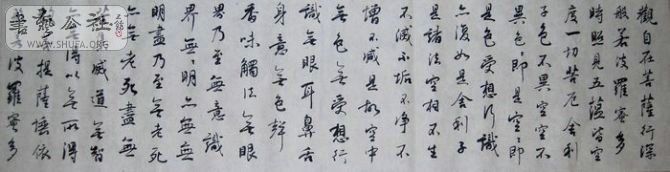 觀自在菩薩行深
般若波羅蜜多
時照見五蘊皆空
度一切苦厄舍利
子色不異空空不
異色色即是空空即
是色受想行識
亦復如是舍利子
是諸法空相不生
不滅不垢不淨不
增不減是故空中
無色無受想行
識無眼耳鼻舌
身意無色聲
香味觸法無眼
界乃至無意識
界無無明亦無無
明盡乃至無老死
亦無老死盡無
滅道無智
無得以無所得
提薩埵依
波羅蜜多
WWW.SHUFA.ORG